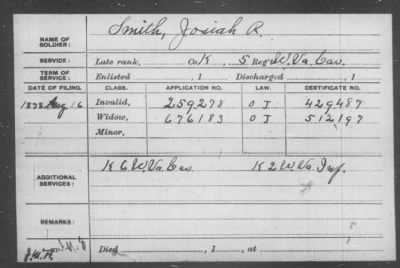 NAME OF SOLDIER: Smith, Josiah R.
SERVICE: Late rank, Co K, 5 Reg't W. Va. Cav.
TERM OF SERVICE: Enlisted , 1 Discharged , 1
DATE OF FILING. CLASS. APPLICATION NO. LAW. CERTIFICATE NO.
1878 Aug 16 Invalid, 259278 O J 429487
Widow, 676183 O J 512197
Minor,
ADDITIONAL SERVICES: K 6 W. Va. Cav K 2 W. Va. Inf.
REMARKS:
Died , 1 , at